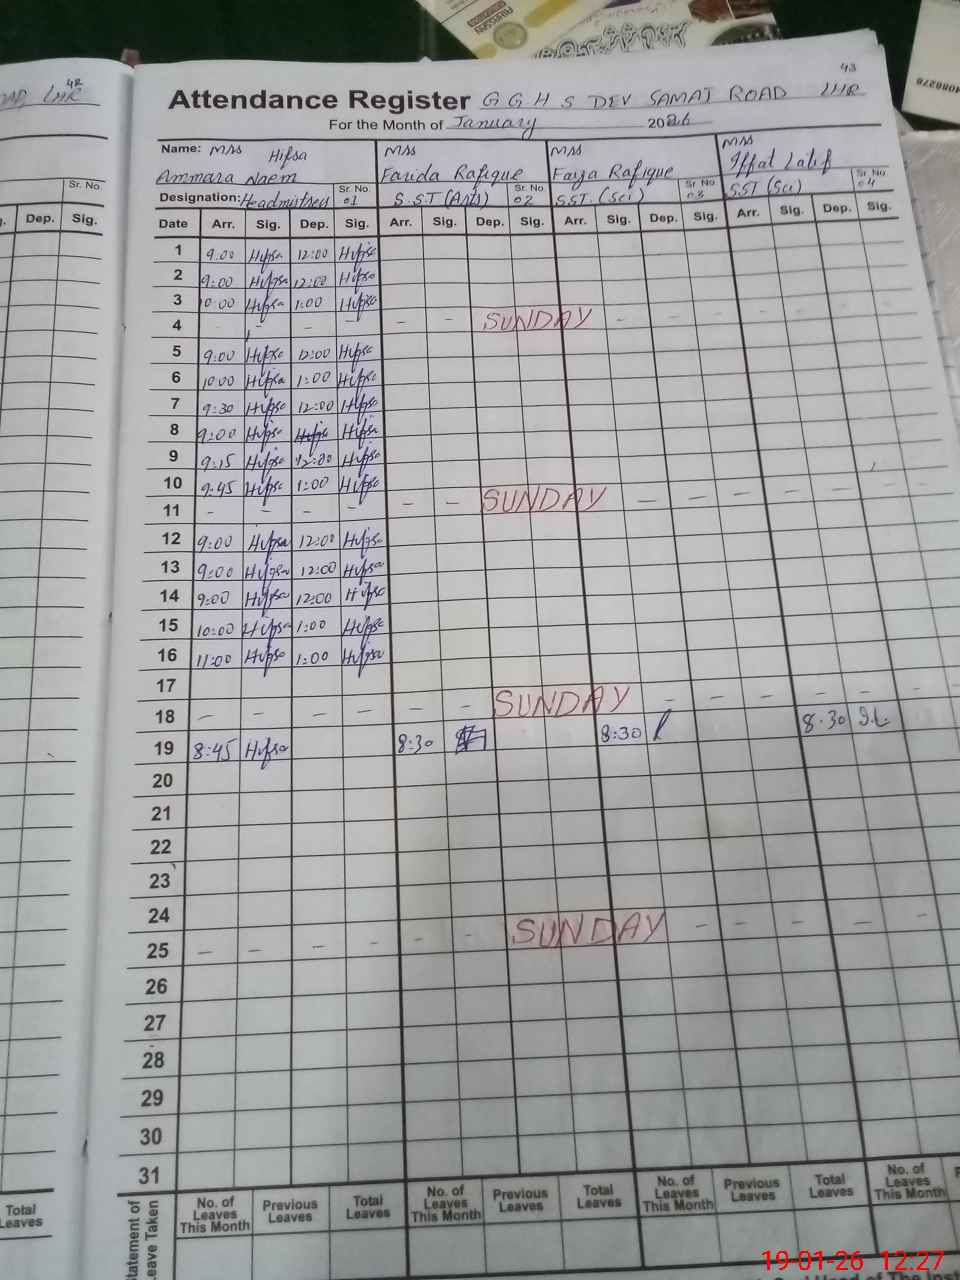 43
42
Attendance Register G G H S DEV SAMAJ ROAD LHR
LHR
For the Month of January 2026
Name: MSS Hifsa Ammara Naem
MSS Farida Rafique
MSS Fayza Rafique
MSS Iffat Latif
Designation: Headmistress Sr. No. 01
S.S.T (Arts) Sr. No. 02
S.S.T. (Sci) Sr. No. 03
S.S.T (Sci) Sr. No. 04
Sr. No.
Dep. Sig.
Date Arr. Sig. Dep. Sig. Arr. Sig. Dep. Sig. Arr. Sig. Dep. Sig. Arr. Sig. Dep. Sig.
1 9:00 Hifsa 12:00 Hifsa
2 9:00 Hifsa 12:00 Hifsa
3 10:00 Hifsa 1:00 Hifsa
4 - - - - - - SUNDAY - - - - - - -
5 9:00 Hifsa 12:00 Hifsa
6 10:00 Hifsa 1:00 Hifsa
7 9:30 Hifsa 12:00 Hifsa
8 9:00 Hifsa Hifsa Hifsa
9 9:15 Hifsa 12:00 Hifsa
10 9:45 Hifsa 1:00 Hifsa
11 - - - - - - SUNDAY - - - - - - -
12 9:00 Hifsa 12:00 Hifsa
13 9:00 Hifsa 12:00 Hifsa
14 9:00 Hifsa 12:00 Hifsa
15 10:00 Hifsa 1:00 Hifsa
16 11:00 Hifsa 1:00 Hifsa
17
18 - - - - - - SUNDAY - - - - - - -
19 8:45 Hifsa 8:30 8:30 8:30 I.L
20
21
22
23
24
25 - - - - - - SUNDAY - - - - - -
26
27
28
29
30
31
Total Leaves
Statement of Leave Taken
No. of Leaves This Month Previous Leaves Total Leaves No. of Leaves This Month Previous Leaves Total Leaves No. of Leaves This Month Previous Leaves Total Leaves No. of Leaves This Month
19-01-26 12:27